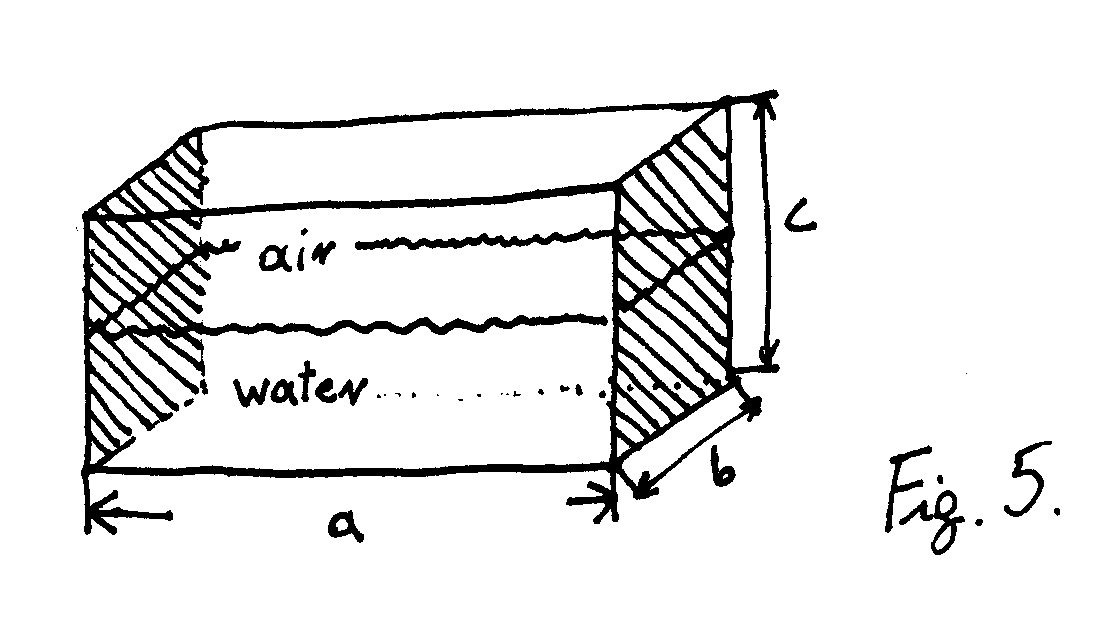 air
c
water
b
a
Fig. 5.